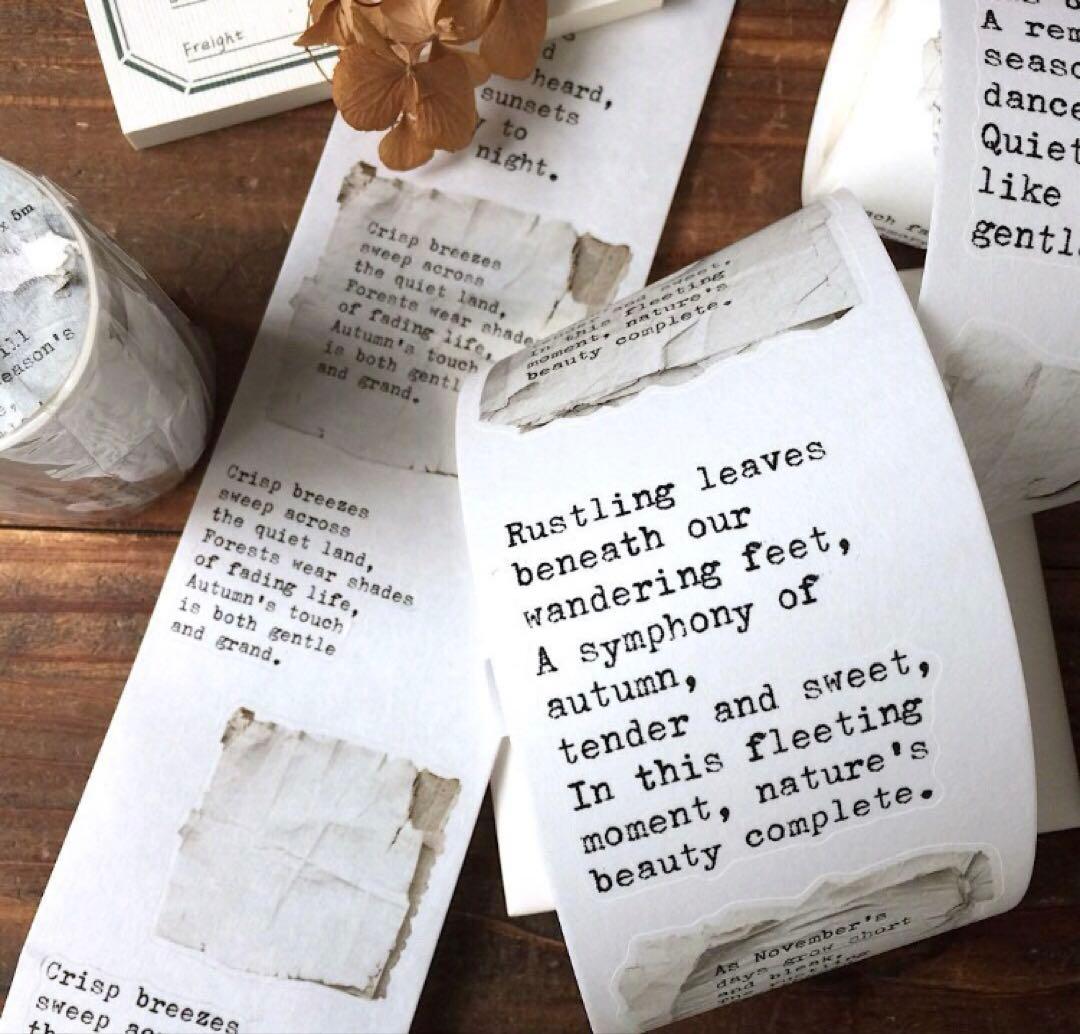 Freight
heard,
sunsets
to
night.
Crisp breezes
sweep across
the quiet land,
Forests wear shades
of fading life,
Autumn's touch
is both gentl
and grand.
Crisp breezes
sweep across
the quiet land,
Forests wear shades
of fading life,
Autumn's touch
is both gentle
and grand.
Crisp breezes
sweep
x 5m
eason's
and sweet,
In this fleeting
moment, nature's
beauty complete.
Rustling leaves
beneath our
wandering feet,
A symphony of
autumn,
tender and sweet,
In this fleeting
moment, nature's
beauty complete.
As November's
days grow short
and bleak,
A rem
seaso
dance
Quiet
like
gentl